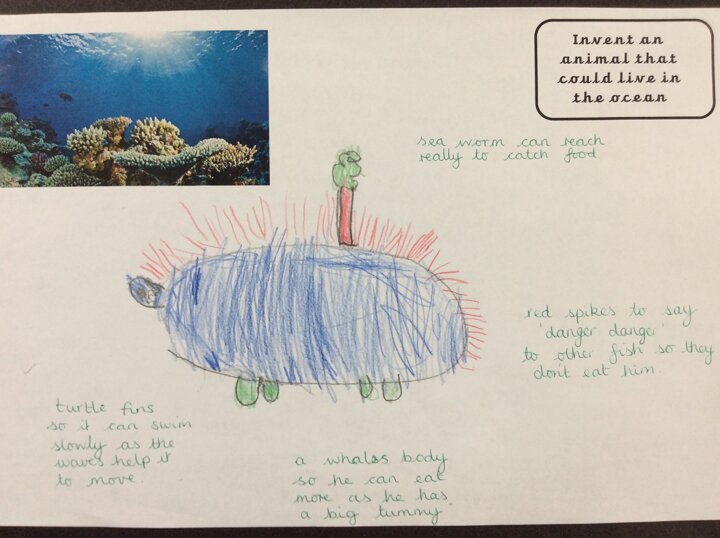 Invent an
animal that
could live in
the ocean
sea worm can reach
really to catch food
red spikes to say
'danger danger'
to other fish so they
dont eat him.
turtle fins
so it can swim
slowly as the
waves help it
to move.
a whales body
so he can eat
more as he has
a big tummy